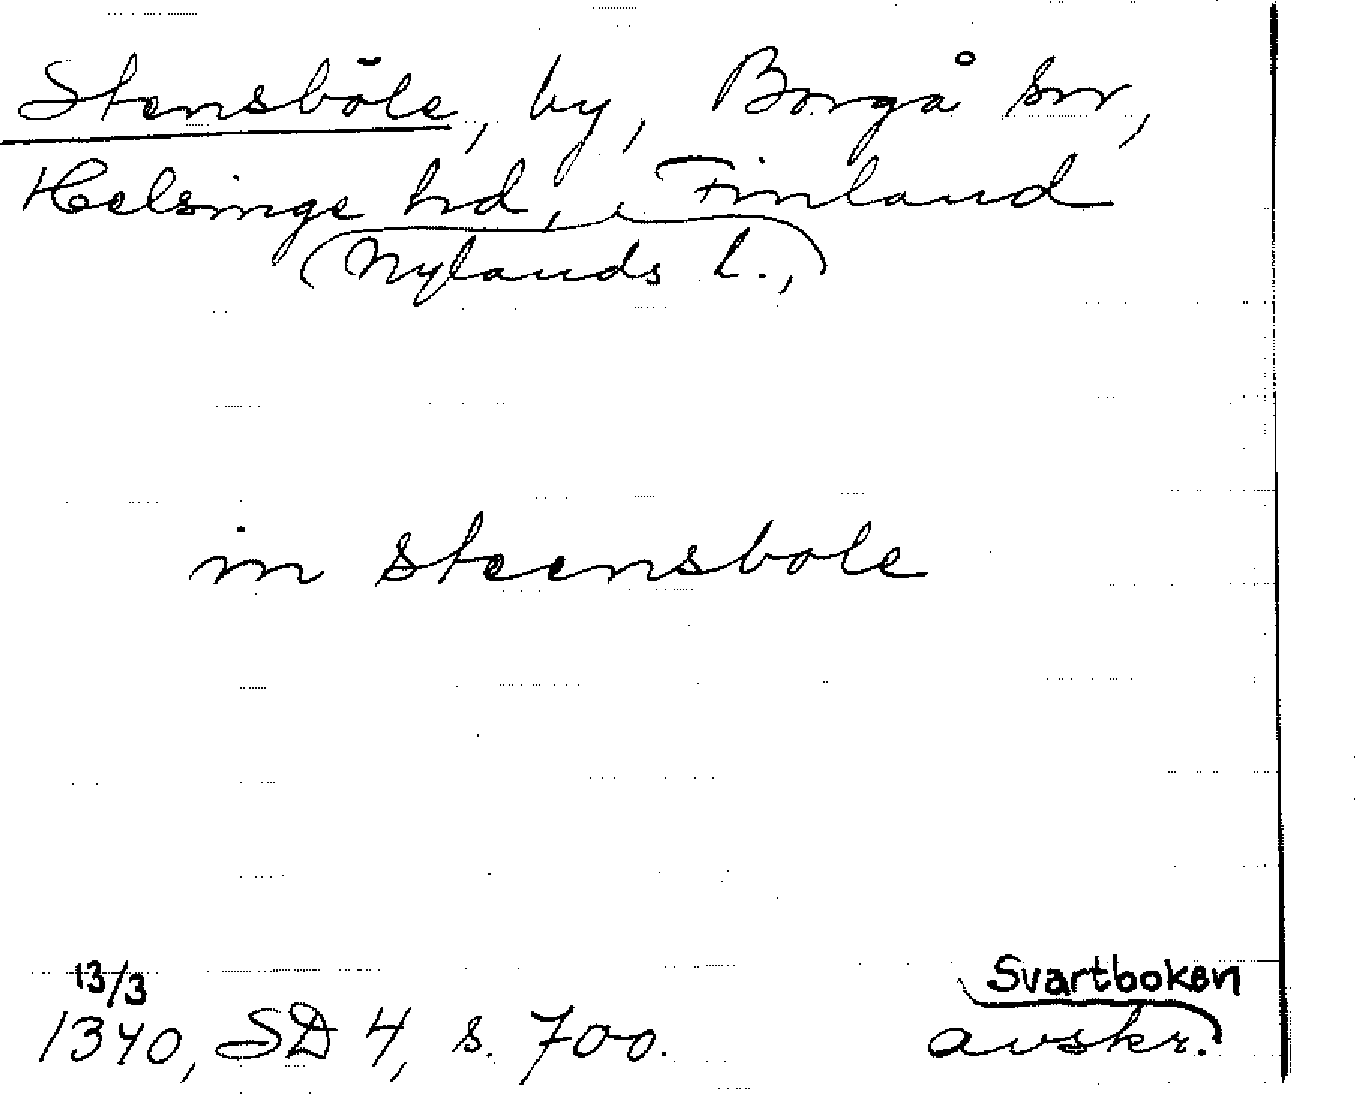 Stensböle, by, Borgå snr,
Helsinge hd, Finland
(Nylands l.,)
in steensbole
13/3
1340, SD 4, s. 700.
Svartboken
avskr.